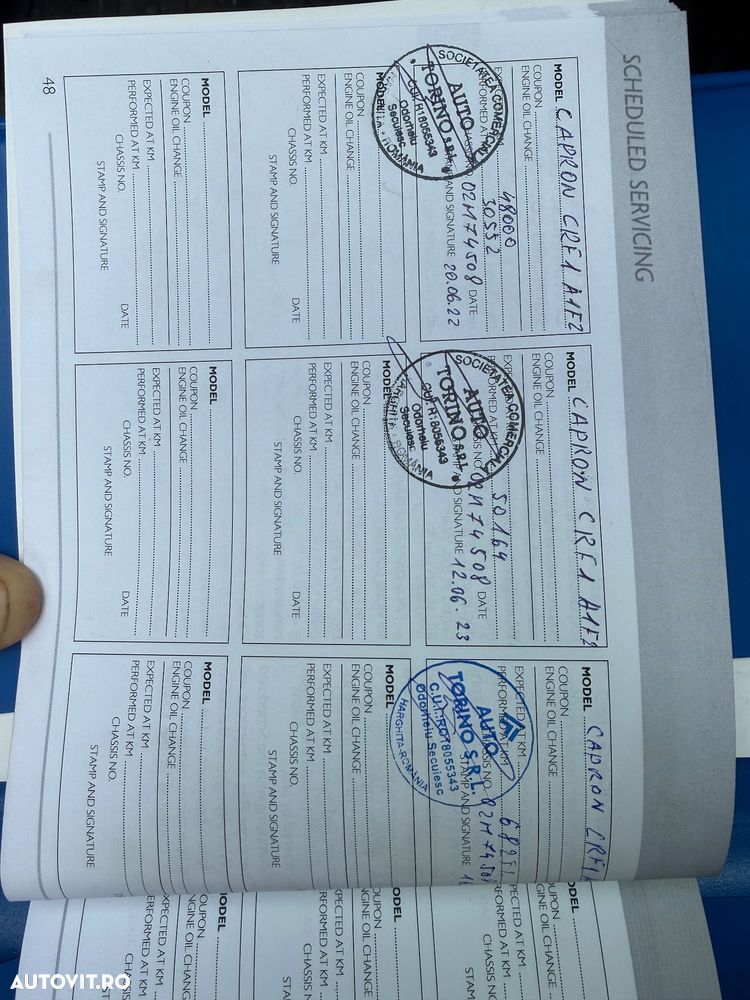 SCHEDULED SERVICING
MODEL CAPRON CRF1 A1F2
COUPON
ENGINE OIL CHANGE
EXPECTED AT KM 48000
PERFORMED AT KM 30552
CHASSIS NO. 02M74508 DATE
STAMP AND SIGNATURE 20.06.22
SOCIETATEA COMERCIALA
AUTO
TORINO S.R.L.
CUI/R18055343
Odorheiu
Secuiesc
ROMANIA
MODEL CAPRON CRF1 A1F2
COUPON
ENGINE OIL CHANGE
EXPECTED AT KM
PERFORMED AT KM 50164
CHASSIS NO. 02M74508 DATE
STAMP AND SIGNATURE 12.06.23
SOCIETATEA COMERCIALA
AUTO
TORINO S.R.L.
CUI/R18055343
Odorheiu
Secuiesc
HARGHITA - ROMANIA
MODEL CAPRON CRF1
COUPON
ENGINE OIL CHANGE
EXPECTED AT KM
PERFORMED AT KM
CHASSIS NO. 02M74508
STAMP AND SIGNATURE
AUTO
TORINO S.R.L.
C.U.I.:RO18055343
Odorheiu Secuiesc
HARGHITA-ROMANIA
MODEL
COUPON
ENGINE OIL CHANGE
EXPECTED AT KM
PERFORMED AT KM
CHASSIS NO.
STAMP AND SIGNATURE DATE
MODEL
COUPON
ENGINE OIL CHANGE
EXPECTED AT KM
PERFORMED AT KM
CHASSIS NO.
STAMP AND SIGNATURE DATE
MODEL
COUPON
ENGINE OIL CHANGE
EXPECTED AT KM
PERFORMED AT KM
CHASSIS NO.
STAMP AND SIGNATURE
MODEL
COUPON
ENGINE OIL CHANGE
EXPECTED AT KM
PERFORMED AT KM
CHASSIS NO.
STAMP AND SIGNATURE DATE
MODEL
COUPON
ENGINE OIL CHANGE
EXPECTED AT KM
PERFORMED AT KM
CHASSIS NO.
STAMP AND SIGNATURE DATE
MODEL
COUPON
ENGINE OIL CHANGE
EXPECTED AT KM
PERFORMED AT KM
CHASSIS NO.
STAMP AND SIGNATURE
48
AUTOVIT.RO